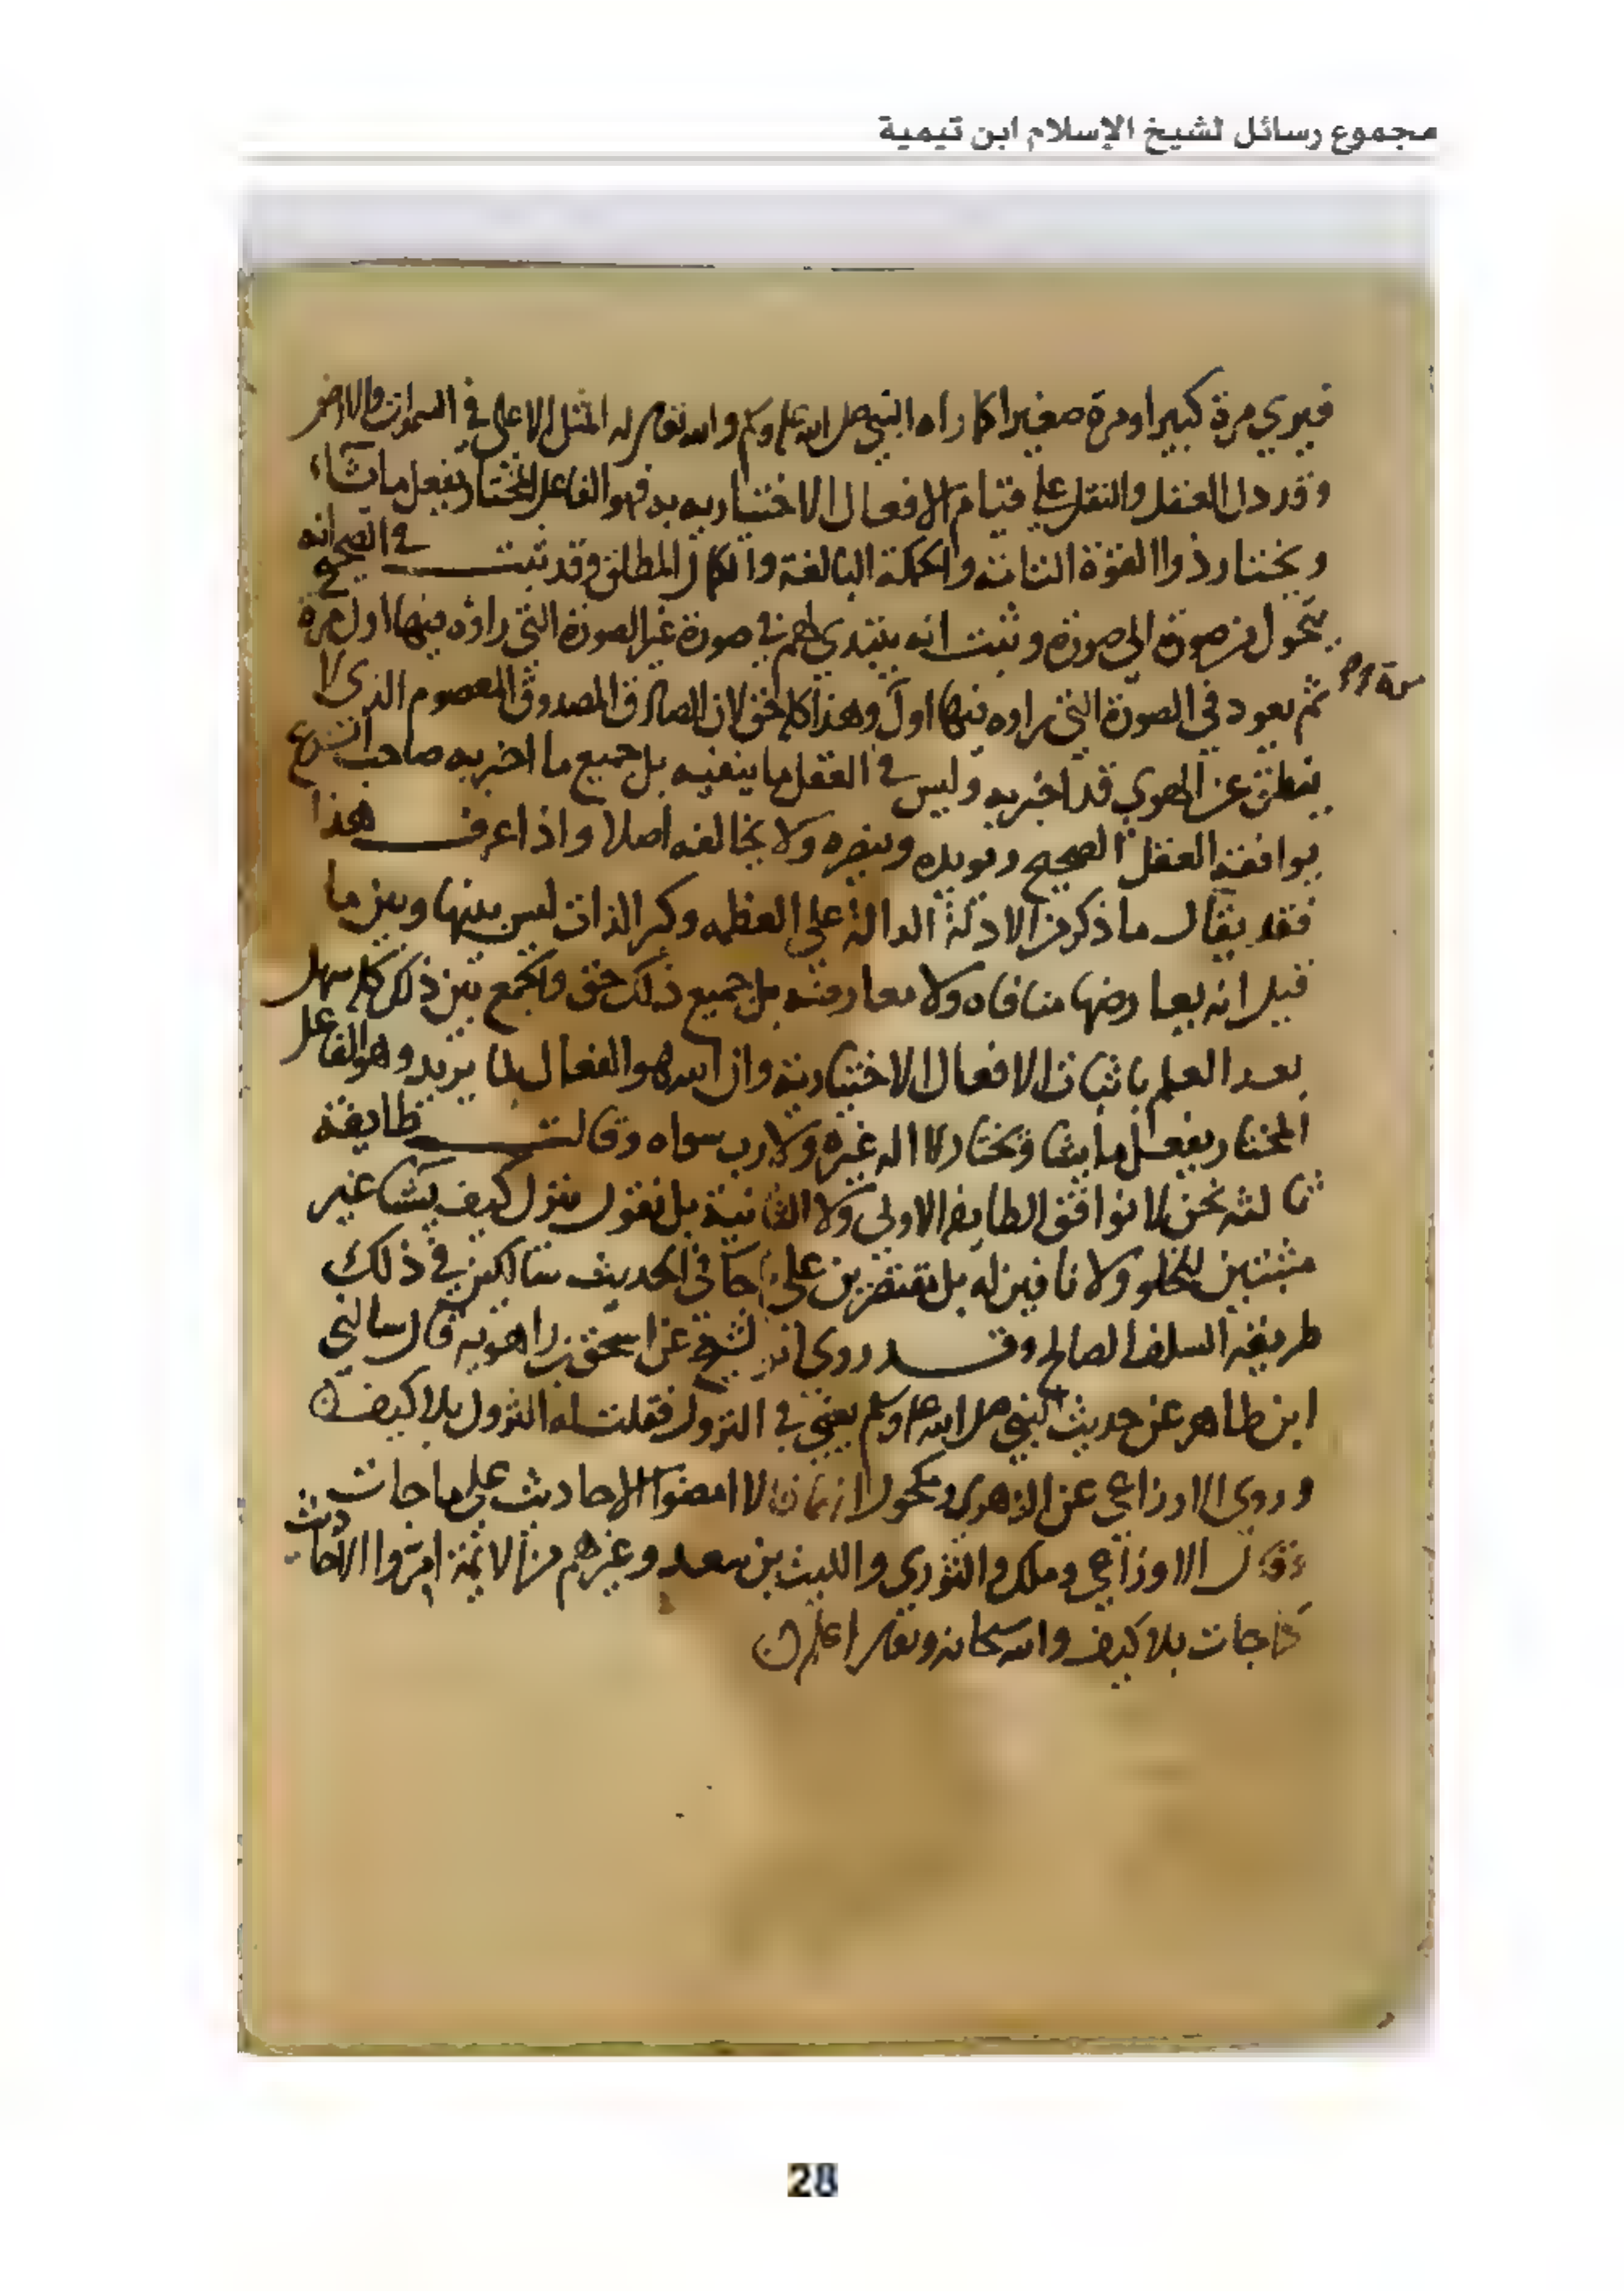 مجموع رسائل لشيخ الإسلام ابن تيمية
فيري مرة كبيرا ومرة صغيرا كما راه النبي صلى الله عليه وسلم والله تعالى له المثل الاعلى في السموات والارض
وقد دل العقل والنقل على قيام الافعال الاختياريه به فهو الفاعل المختار يفعل ما يشاء
ويختار ذوا القوة التامة والحكمة البالغة والكمال المطلق وقد ثبت في الصحيح انه
يتحول من صورة الى صورة وثبت انه يتبدى لهم في صورة غير الصورة التي راوه فيها اول مرة
ثم يعود في الصورة التي راوه فيها اول وهذا كله حق لان الصادق المصدوق المعصوم الذي لا
ينطق عن الهوى قد اخبر به وليس في العقل ما ينفيه بل جميع ما اخبر به صاحب الشرع
يوافقه العقل الصحيح ويويده وينصره ولا يخالفه اصلا واذا عرف هذا
فقد يقال ما ذكر من الادلة الدالة على العظمه وكبر الذات ليس بينها وبين ما
قيل انه يعارضها منافاه ولا معارضه بل جميع ذلك حق والجمع بين ذلك كله سهل
بعد العلم باثبات الافعال الاختيارية وان الله هو الفعال لما يريد وهو الفاعل
المختار يفعل ما يشا ويختار لا اله غيره ولا رب سواه وقالت طايفة
ثالثه نحن لا نوافق الطايفه الاولى ولا الثانية بل نقول ينزل كيف يشا غير
مثبتين للخلو ولا نافين له بل مقتصرين على ما جا في الحديث سالكين في ذلك
طريقة السلف الصالح وقد روى ابو الشيخ عن اسحق بن راهويه قال سالني
ابن طاهر عن حديث النبي صلى الله عليه وسلم يعني في النزول فقلت له النزول بلا كيف
وروى الاوزاعي عن الزهري ومكحول انهما قالا امضوا الاحاديث على ما جات
وقال الاوزاعي وملك والثوري والليث بن سعد وغيرهم من الائمة امروا الاحاديث
كما جات بلا كيف والله سبحانه وتعالى اعلم
28